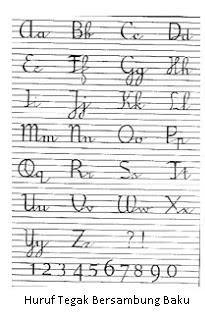 Aa Bb Cc Dd
Ee Ff Gg Hh
Ii Jj Kk Ll
Mm Nn Oo Pp
Qq Rr Ss Tt
Uu Vv Ww Xx
Yy Zz ?!
1234567890
Huruf Tegak Bersambung Baku